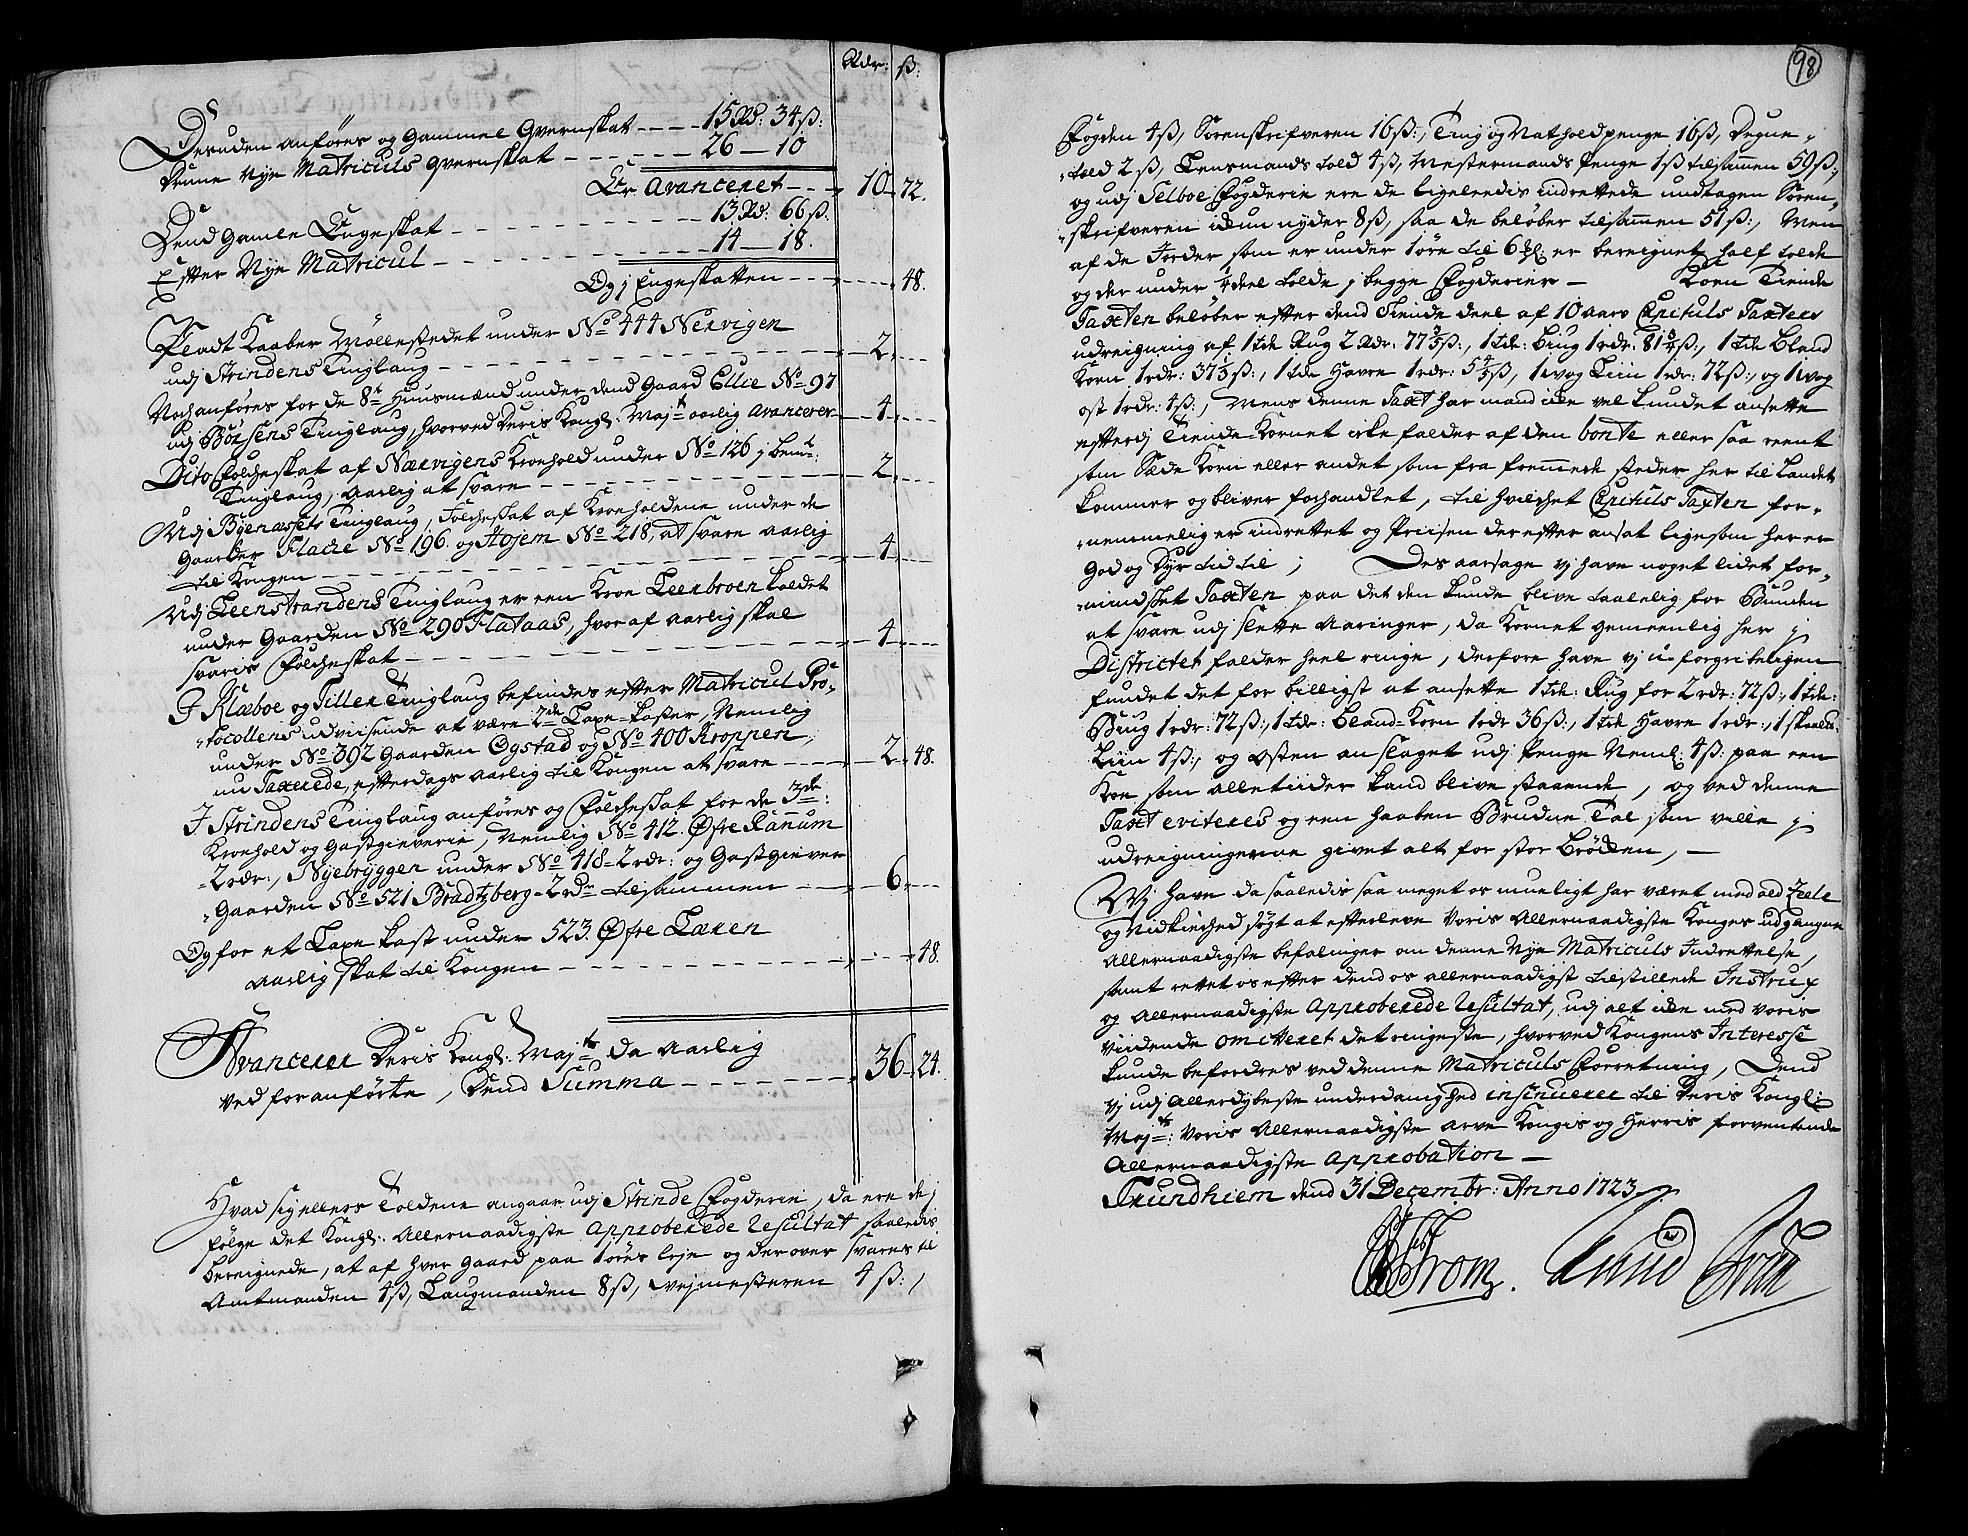 Rdr: ß:
Desuden anføres og Gammel Qvernskat ---- 15 Rd: 34 ß:
Denne Nye Matriculs Qvernskat ------ 26 — 10
Er Avanceret --- 10 - 72.
Dend Gamle Lugeskat ------ 13 Rd: 66 ß.
Efter Nye Matricul ------ 14 — 18.
Og j Lugeskatten ---- 48.
Kaaber Møllestedet under No 444 Nervigen
udj Strindens Tinglaug ------ 2 ---
Noch anføres for de 8te Huusmænd under dend Gaard Ellie No 97
udj Børsens Tinglaug, hvorved Deris Kongl: Majts aarlig Avancerer 4 ---
Dito Følcheskat af Nærvigens Kroehold under No 126 j
Tinglaug, Aarlig at svare ------ 2 ---
Udj Byenæssets Tinglaug, Folcheskat af Kroeholdene under de
Gaarder Flache No 196. og Højem No 218, at svare aarlig
til Kongen ------ 4 ---
Udj Leenstrandens Tinglaug er een Kroe Leerbroen kaldet
under Gaarden No 290 Flataas, hvoraf aarlig skal
svaris Følcheskat ------ 4 ---
J Klæboe og Tiller Tinglaug befindes efter Matricul Pro-
-tocollens udviisende at være 2de Laxe-kaster, Nemlig
under No 392 Gaarden Ogstad og No 400 Kroppen,
nu Taxerede, efterdags aarlig til Kongen at svare --- 2 - 48.
J Strindens Tinglaug anføres og Følcheskat for de 3de:
Kroehold og Gastgieverie, Nemlig No 412. Øfre Ranum
- 2 rdr:, Nyebryggen under No 418 - 2 rdr: og Gastgiever
-Gaarden No 521 Bradtzberg - 2 rdr tilsammen --- 6 ---
Og for et Laxe kast under 523. Øfre Læren
Aarlig skat til Kongen ------ 48.
Avancerer Deris Kongl: Majts da Aarlig
ved foranførte, Dend Summa ------ 36 - 24.
Hvad sig ellers Toldene angaar udj Strinde Fogderie, da ere de j
følge det Kongl: Allernaadigste Approberede Resultat saaledis
bereignede, at af hver Gaard paa 1 øres leje og derover svares til
Amtmanden 4 ß, Laugmanden 8 ß, Vejmesteren 4 ß:,
98
Fogden 4 ß, Sorenskrifveren 16 ß:, Ting og Natholdpenge 16 ß, Degne-
-told 2 ß, Lensmands told 4 ß, Mestermands Penge 1 ß tilsammen 59 ß:,
og udj Selboe Fogderie ere de ligeleedis indrettede undtagen Soren-
-skrifveren ickun nyder 8 ß, saa de beløber tilsammen 51 ß:, Men
af de Jorder som er under 1 øre til 6 er bereignet half tolde
og der under 1/4 deel tolde j begge Fogderier — Korn Tiende
Taxten beløber efter dend Tiende deel af 10 aars Capituls Taxters
udreigning af 1 tde Rug 2 Rdr: 77 ß:, 1 tde: Biug 1 rdr: 81 ß:, 1 tde Bland
Korn 1 rdr: 37 ß:, 1 tde Havre 1 rdr: 5 ß, 1 wog Liin 1 rdr: 72 ß:, og 1 wog
ost 1 rdr: 4 ß:, Mens denne Taxt har mand icke vel kundet ansette
efterdj Tiende-Kornet icke falder af den bonte eller saa reent
som Sæde Korn eller andet som fra fremmede steder her til Landet
kommer og bliver forhandlet, til hvilchet Capituls Taxten for-
-nemmelig er indrettet og Priisen derefter ansat ligesom her er
God og Dyr tid til; Des aarsage vj have noget lidet for-
-mindsket Taxten paa det den kunde blive taalelig for Bunden
at svare udj slette Aaringer, da Kornet gemeenlig her j
Districtet falder heel ringe, derfore have vj u-forgribeligen
fundet det for billigst at ansette 1 tde: Rug for 2 rdr: 72 ß:, 1 tde:
Biug 1 rdr: 72 ß:, 1 tdr: bland-Korn 1 rdr 36 ß:, 1 tde Havre 1 rdr:, 1 skaal
Liin 4 ß:, og Osten anslaget udj Penge Neml: 4 ß: paa een
Koe som alletiider kand blive staaende, og ved denne
Taxt eviteres og een haaben Brudne Tal som ville j
udreigningerne givet alt for stor Brøcken, —
Wj have da saaledis saa meget os mueligt har været med ald Zeele
og Nidkierhed søgt at efterleve Voris Allernaadigste Konges udgangne
Allernaadigste befalinger om denne Nye Matriculs Indrettelse,
samt rettet os efter dend os allernaadigst tilstillede Instrux
og Allernaadigste Approberede Resultat, udj alt icke med voris
viidende omitteret det ringeste, hvorved Kongens Interesse
kunde befordres ved denne Matriculs Forretning, Dend
vj udj Allerdybeste underdanighed insinuerer til Deris Kongl:
Majts: Voris Allernaadigste Arve Kongis og Herris forventende
Allernaadigste Approbation —
Trundhiem dend 31 Decembr: Anno 1723.